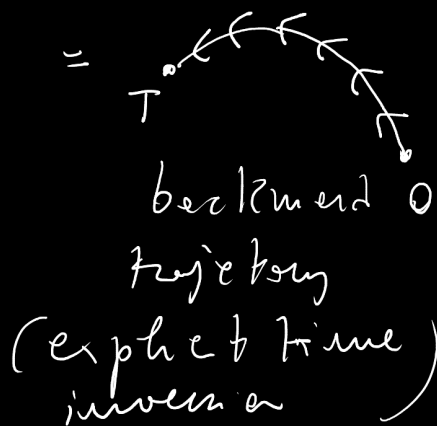 =
T
backward 0
trajectory
(explicit time
inversion)